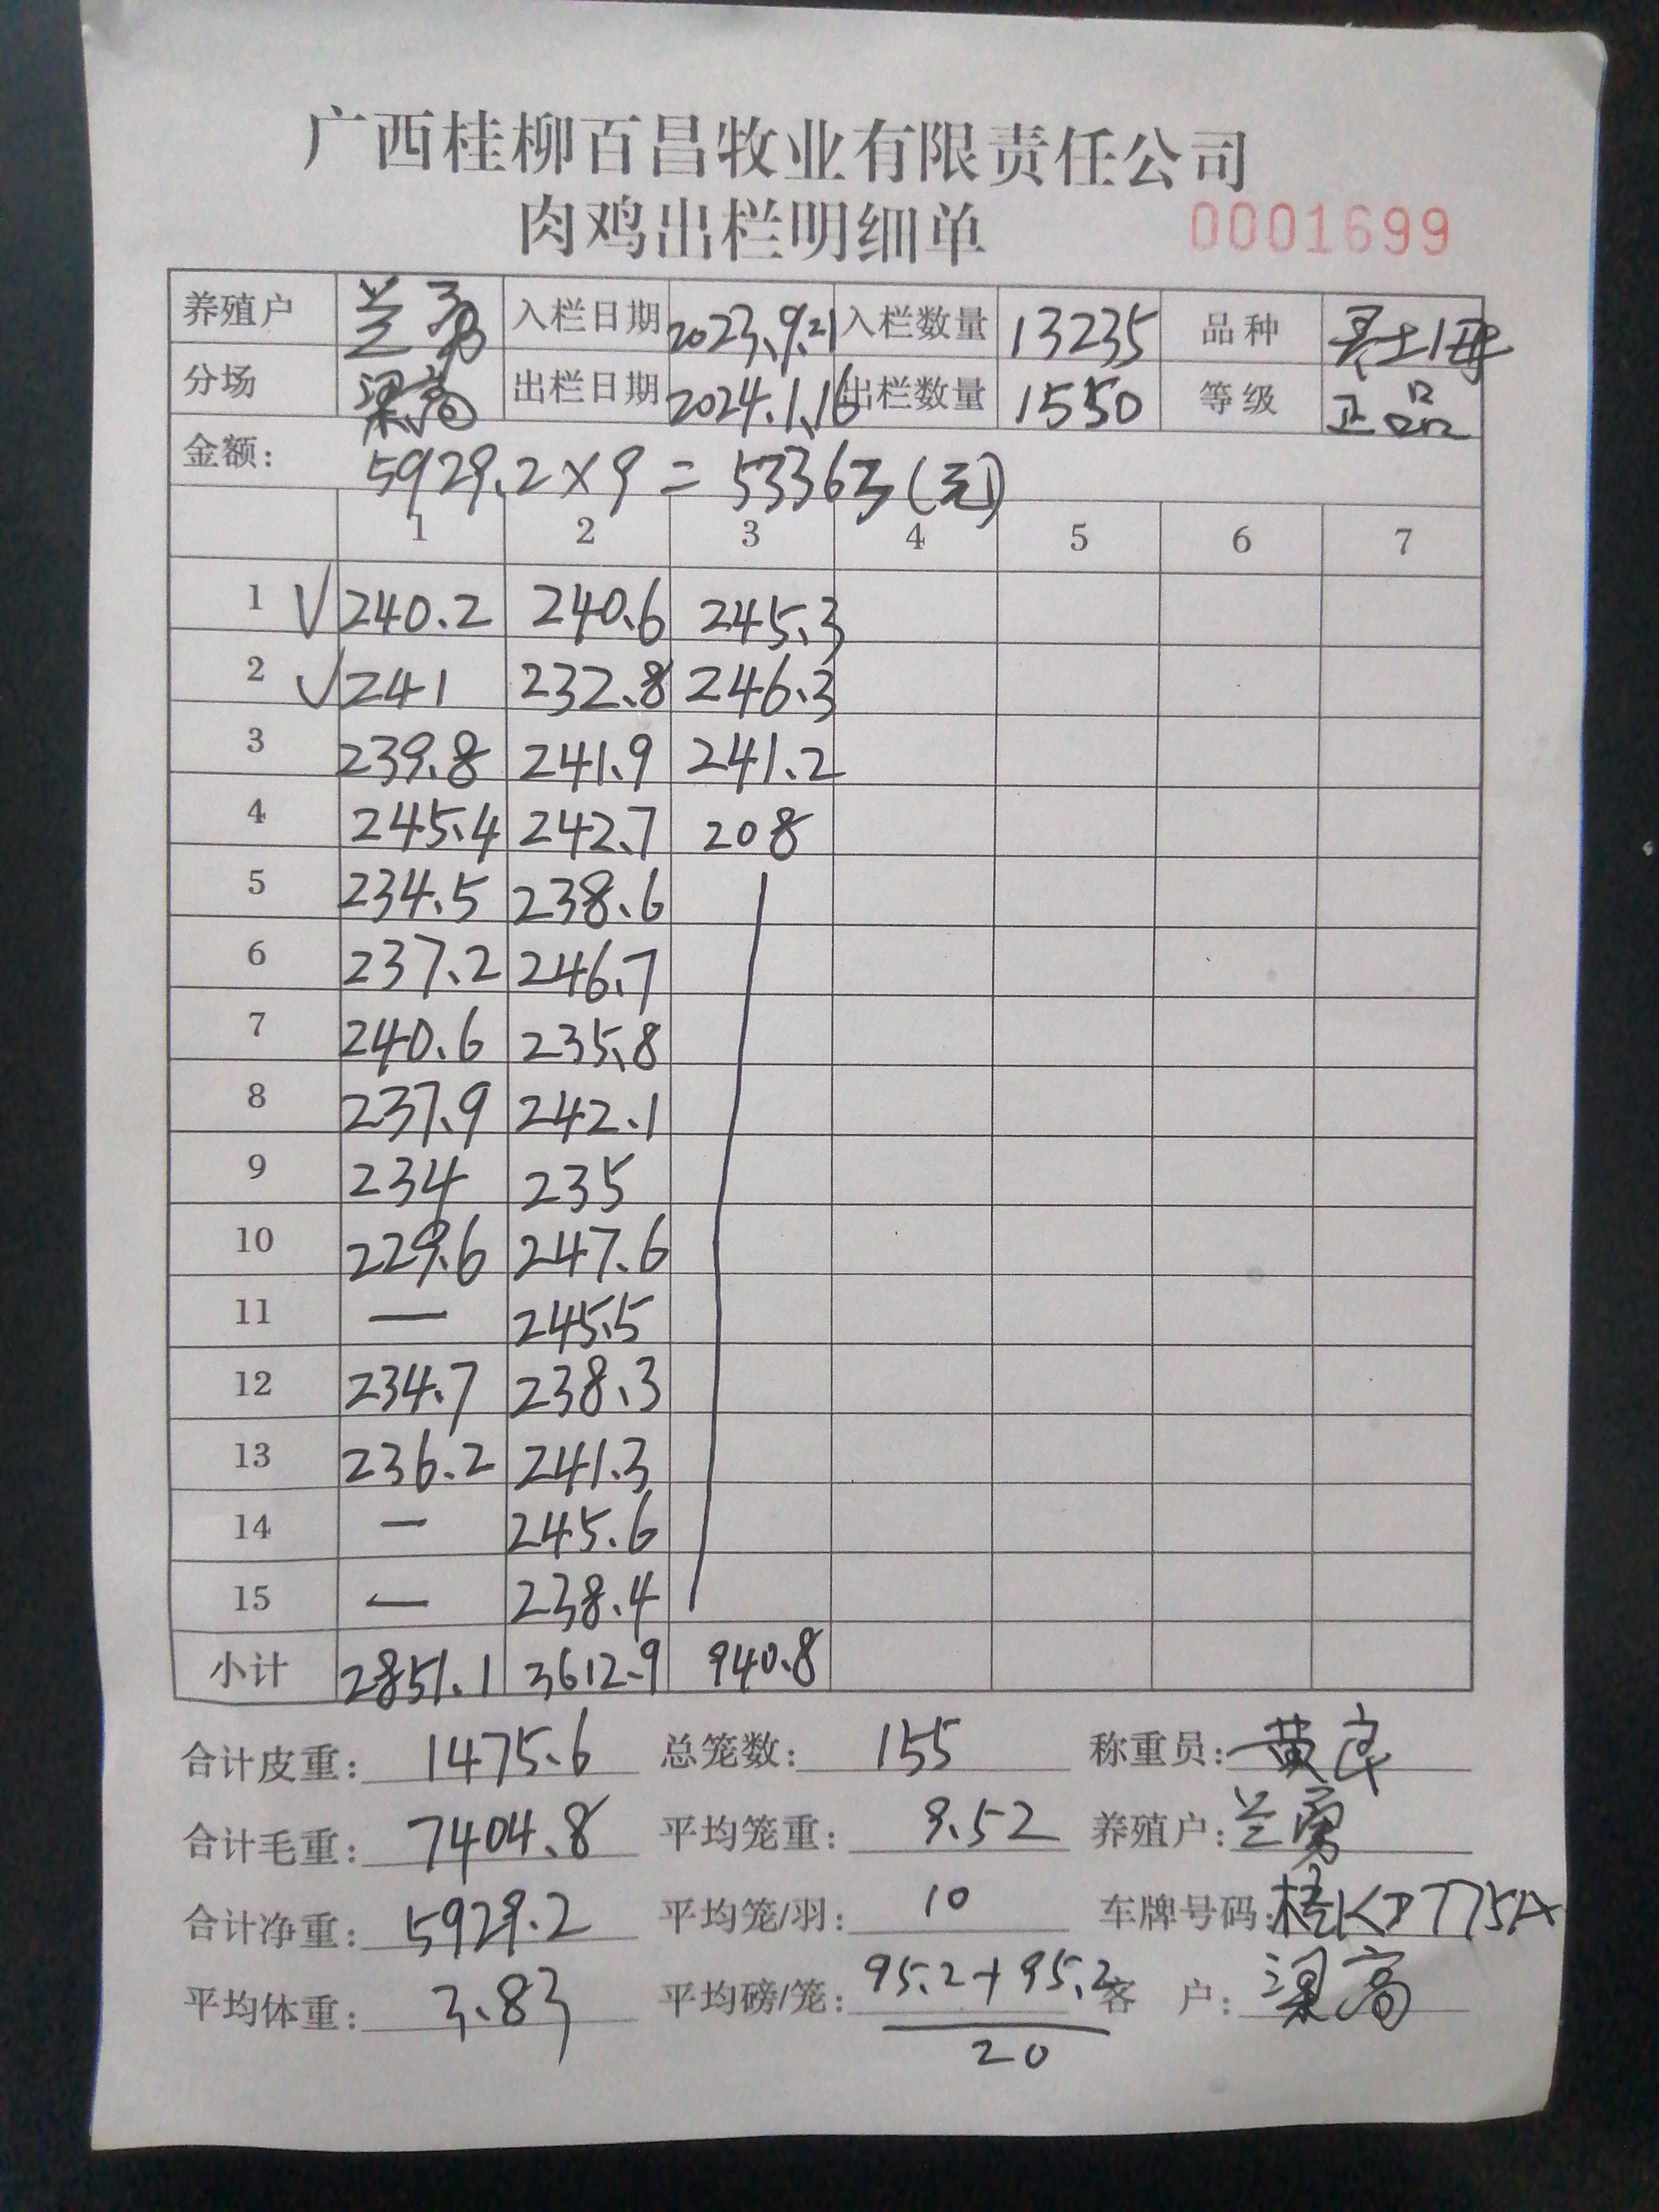 广西桂柳百昌牧业有限责任公司
肉鸡出栏明细单 0001699
养殖户 兰勇 入栏日期 2023.9.21 入栏数量 13235 品种 土1母
分场 梁高 出栏日期 2024.1.16 出栏数量 1550 等级 正品
金额: 5929.2×9=53363(元)
1 2 3 4 5 6 7
1 √240.2 240.6 245.3
2 √241 232.8 246.3
3 239.8 241.9 241.2
4 245.4 242.7 208
5 234.5 238.6
6 237.2 246.7
7 240.6 235.8
8 237.9 242.1
9 234 235
10 229.6 247.6
11 — 245.5
12 234.7 238.3
13 236.2 241.3
14 — 245.6
15 — 238.4
小计 2851.1 3612.9 940.8
合计皮重: 1475.6 总笼数: 155 称重员: 黄
合计毛重: 7404.8 平均笼重: 9.52 养殖户: 兰勇
合计净重: 5929.2 平均笼/羽: 10 车牌号码: 桂KD775A
平均体重: 3.83 平均磅/笼: 95.2+95.2 客 户: 梁高
20